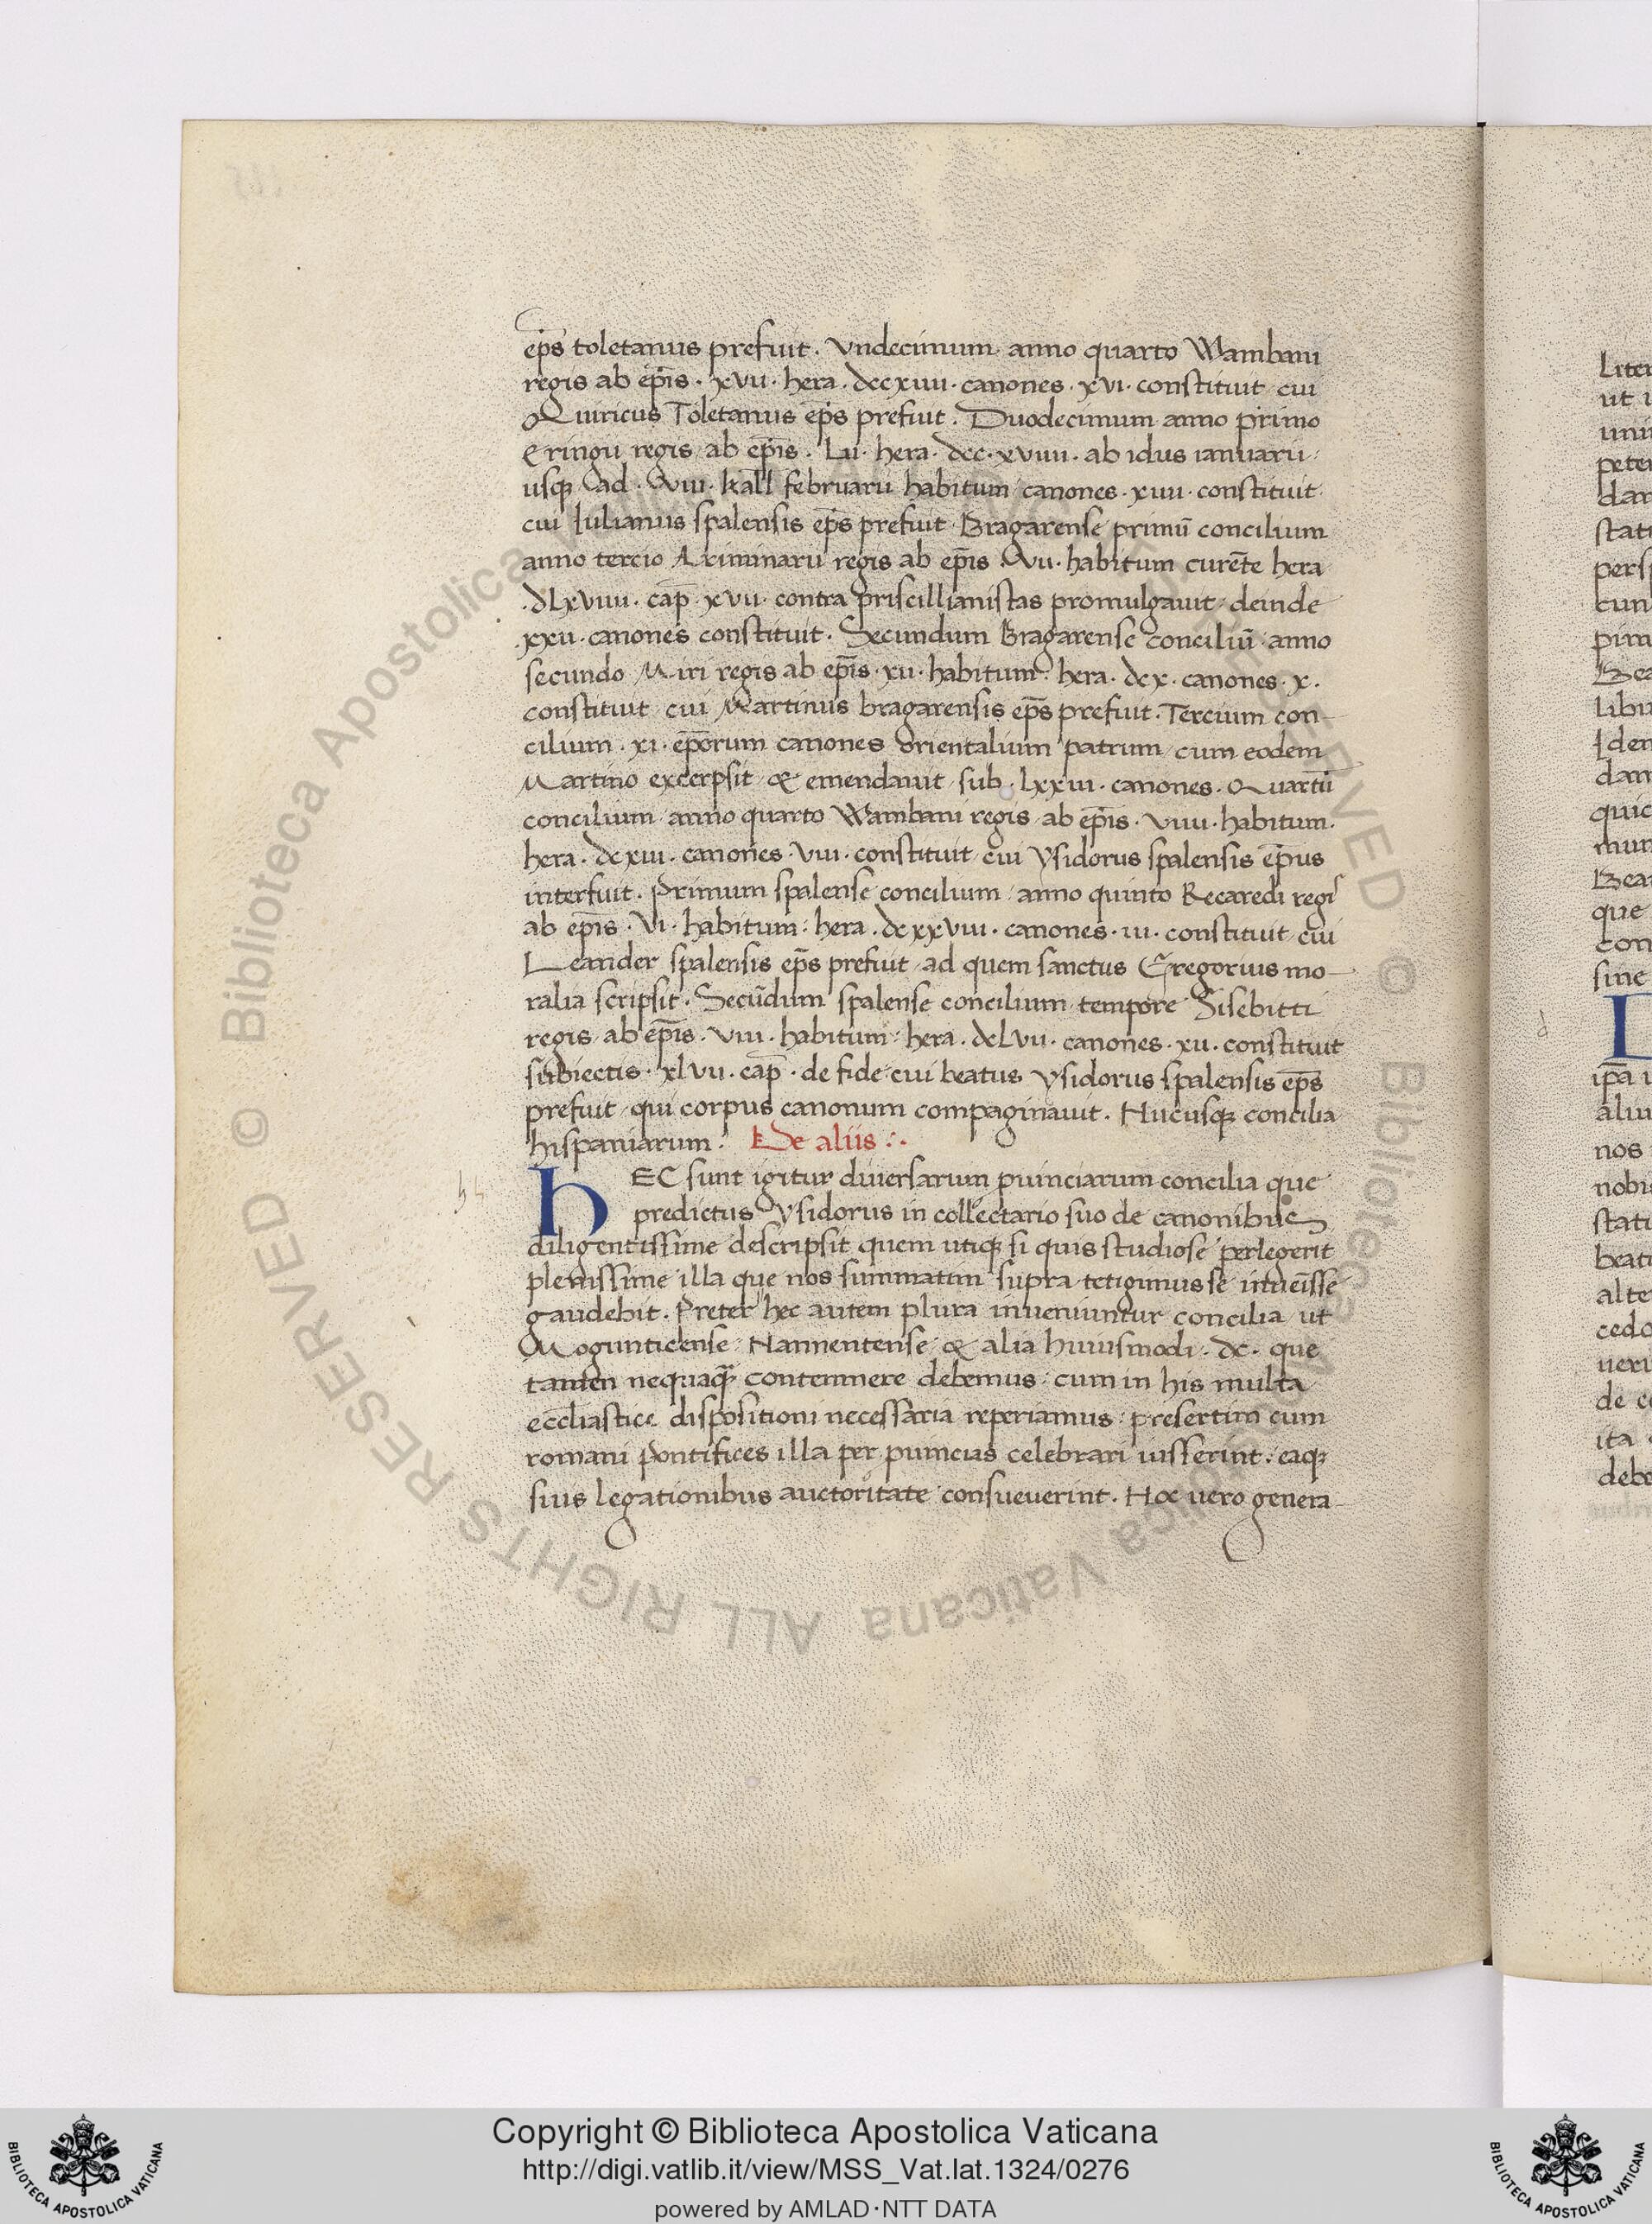 ep̄s toletanus prefuit. Vndecimum anno quarto Wambani
regis ab ep̄is. xvii. hera. dccxiiii. canones. xvi. constituit cui
Quiricus Toletanus ep̄s prefuit. Duodecimum anno primo
eringii regis ab ep̄is. Lii. hera. dcc. xviiii. ab idus ianuarii
usq; ad. viii. kall februarii habitum canones. xiii. constituit
cui Iulianus spalensis ep̄s prefuit. Bragarense primū concilium
anno tercio Ariminarii regis ab ep̄is. vii. habitum curēte hera
.dLxviiii. cap̄. xvii. contra priscillianistas promulgauit deinde
.xxii. canones constituit. Secundum Bragarense conciliū anno
secundo Miri regis ab ep̄is. xii. habitum hera. dcx. canones. x.
constituit cui Martinus bragarensis ep̄s prefuit. Tercium con-
cilium. xi. ep̄orum canones orientalium patrum cum eodem
Martino excerpsit & emendauit sub. Lxxiii. canones. Quartū
concilium anno quarto Wambani regis ab ep̄is. viiii. habitum.
hera. dcxiii. canones. viii. constituit cui ysidorus spalensis ep̄us
interfuit. Primum spalense concilium anno quinto Recaredi regis
ab ep̄is. vi. habitum: hera. dcxxviii. canones. iii. constituit cui
Leander spalensis ep̄s prefuit ad quem sanctus Gregorius mo-
ralia scripsit. Secūdum spalense concilium tempore Sisebitti
regis ab ep̄is. viii. habitum: hera. dcLvii. canones. xii. constituit
subiectis. xlvii. cap̄. de fide cui beatus ysidorus spalensis ep̄s
prefuit qui corpus canonum compaginauit. Hucusq; concilia
hispaniarum. De aliis ∴.
hEC sunt igitur diuersarum puinciarum concilia que
predictus ysidorus in collectario suo de canonibus
diligentissime descripsit quem utiq; si quis studiose perlegerit
plenissime illa que nos summatim supra tetigimus se inueīsse
gaudebit. Preter hec autem plura inueniuntur concilia ut
Mogunticense: Nannentense & alia huiusmodi. dc. que
tamen nequaq̄ contemnere debemus: cum in his multa
eccl̄iastice dispositioni necessaria reperiamus: presertim cum
romani pontifices illa per puincias celebrari iusserint: eaq;
suis legationibus auctoritate consueuerint. Hoc uero genera-
Copyright © Biblioteca Apostolica Vaticana
http://digi.vatlib.it/view/MSS_Vat.lat.1324/0276
powered by AMLAD·NTT DATA